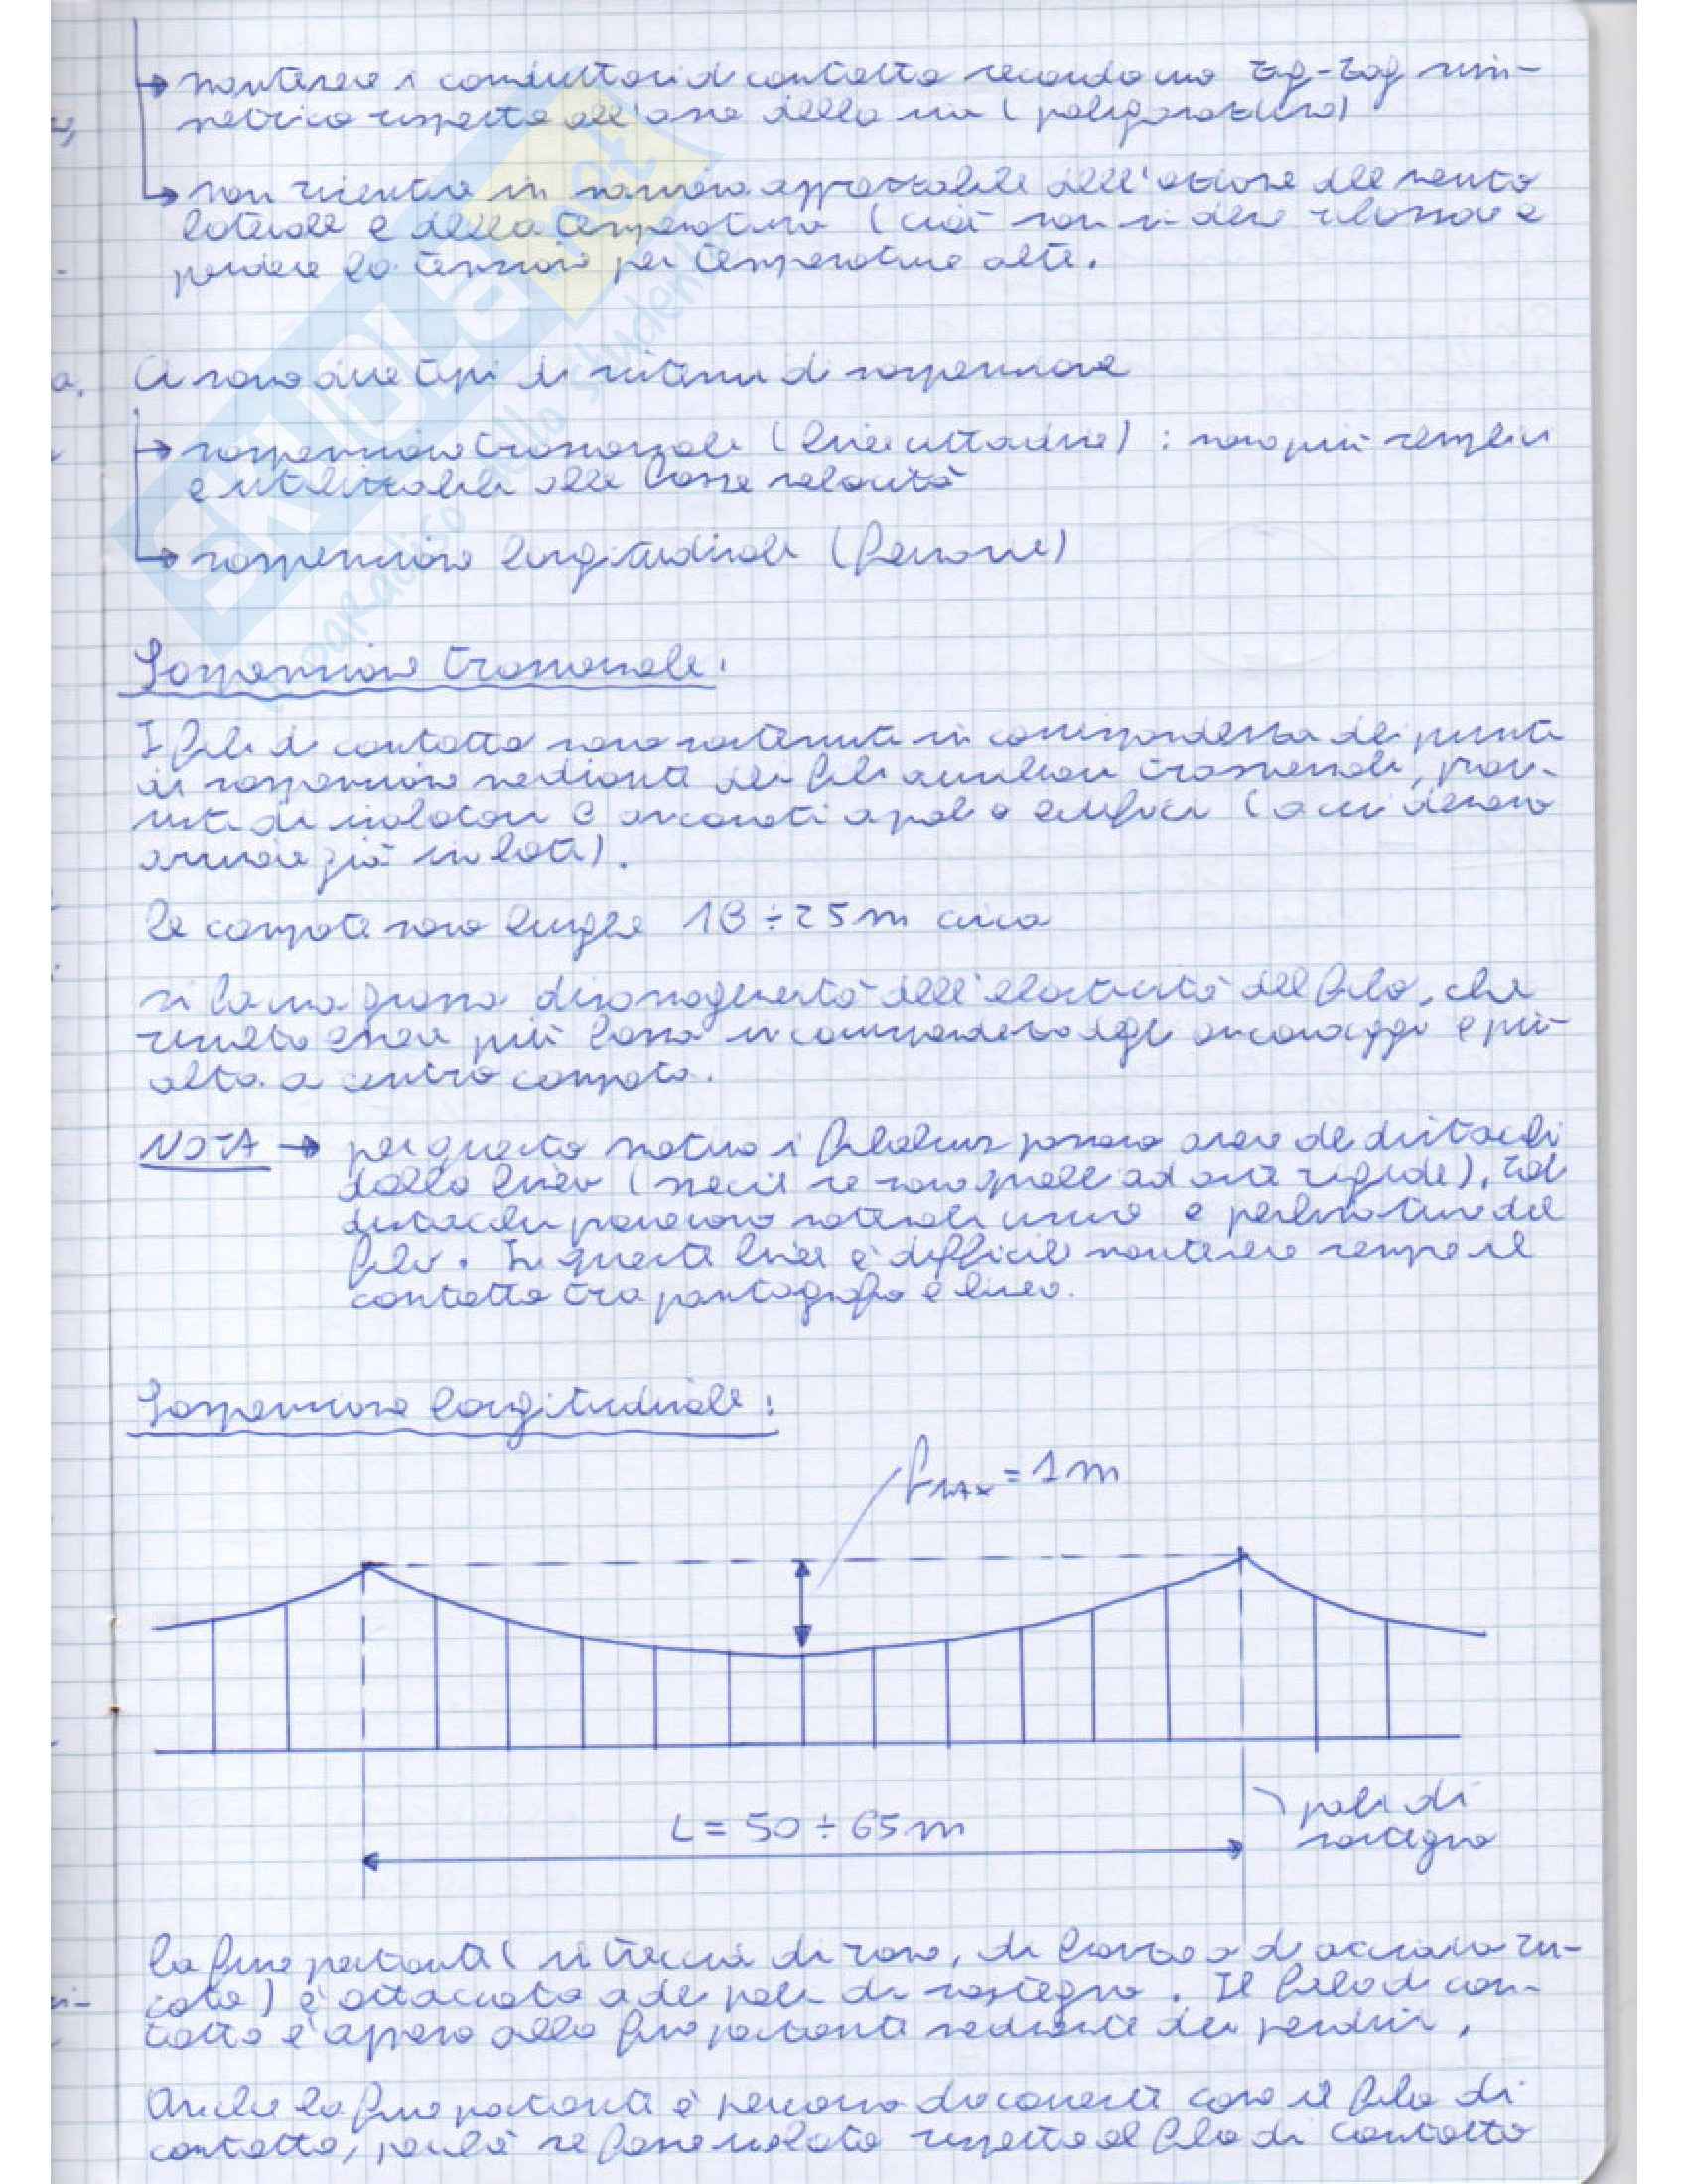 → mantenere i conduttori di contatto secondo uno zig-zag sim-
metrico rispetto all'asse della via (poligonazione)
→ non risentire in maniera apprezzabile dell'azione del vento
laterale e della temperatura (cioè non si deve rilassare e
perdere la tensione per temperature alte.
Ci sono due tipi di sistemi di sospensione
→ sospensione trasversale (linee cittadine) : sono più semplici
e utilizzabili alle basse velocità
→ sospensione longitudinale (ferrovie)
Sospensione trasversale:
I fili di contatto sono sostenuti in corrispondenza dei punti
di sospensione mediante dei fili ausiliari trasversali, prov-
visti di isolatori e ancorati a pali o edifici (a cui devono
arrivare già isolati).
Le campate sono lunghe 18÷25m circa
si ha una grossa disomogeneità dell'elasticità del filo, che
risulta essere più bassa in corrispondenza degli ancoraggi e più
alta a centro campata.
NOTA → per questo motivo i filobus possono avere dei distacchi
dalla linea (specie se sono quelle ad aste rigide), tali
distacchi possono usura e perfino rottura del
filo. In queste linee è difficile mantenere sempre il
contatto tra pantografo e linea.
Sospensione longitudinale:
fMAX = 1m
L = 50÷65m
pali di
sostegno
La fune portante (si treccia di rame, di bronzo o di acciaio zin-
cato) è attaccata a dei pali di sostegno. Il filo di con-
tatto è appeso alla fune portante mediante dei pendini.
Anche la fune portante è percorsa da corrente come il filo di
contatto, perché se fosse isolata rispetto al filo di contatto
SKUOLA.net
il paradiso dello studente